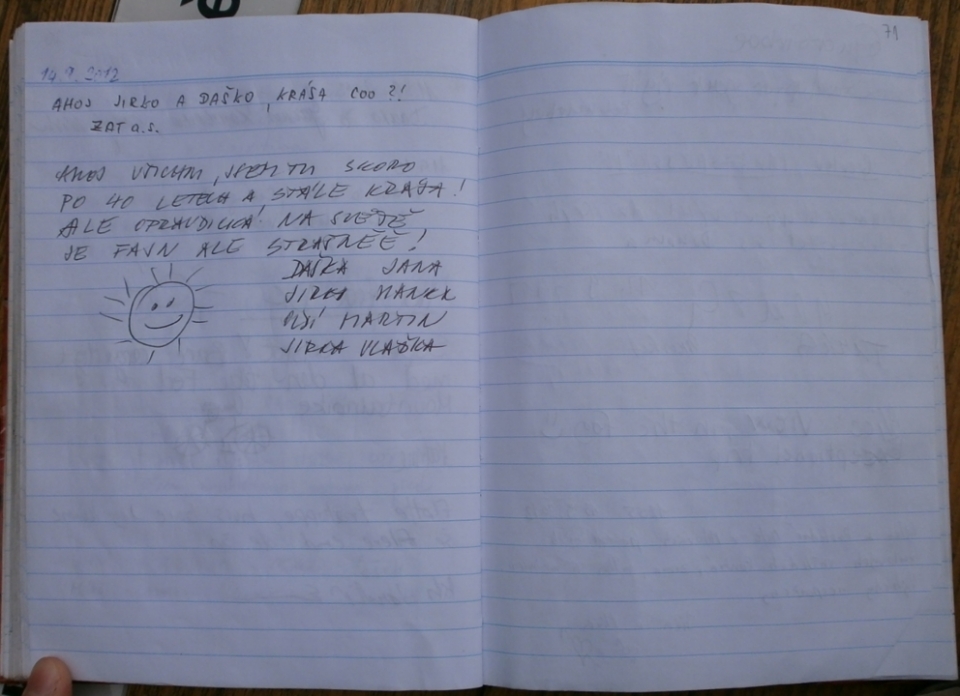 71
14.9.2012
AHOJ JIRKO A DAŠKO, KRÁSA COO ?!
ZAT a.s.
AHOJ VŠICHNI, JSEM TU SKORO
PO 40 LETECH A STÁLE KRÁSA!
ALE OPRAVDICKÁ! NA SVĚTĚ
JE FAJN ALE STRAŠNĚĚ!
DAŠKA JANA
JIRKA HANEK
MARTIN
JIRKA VLAŠKA